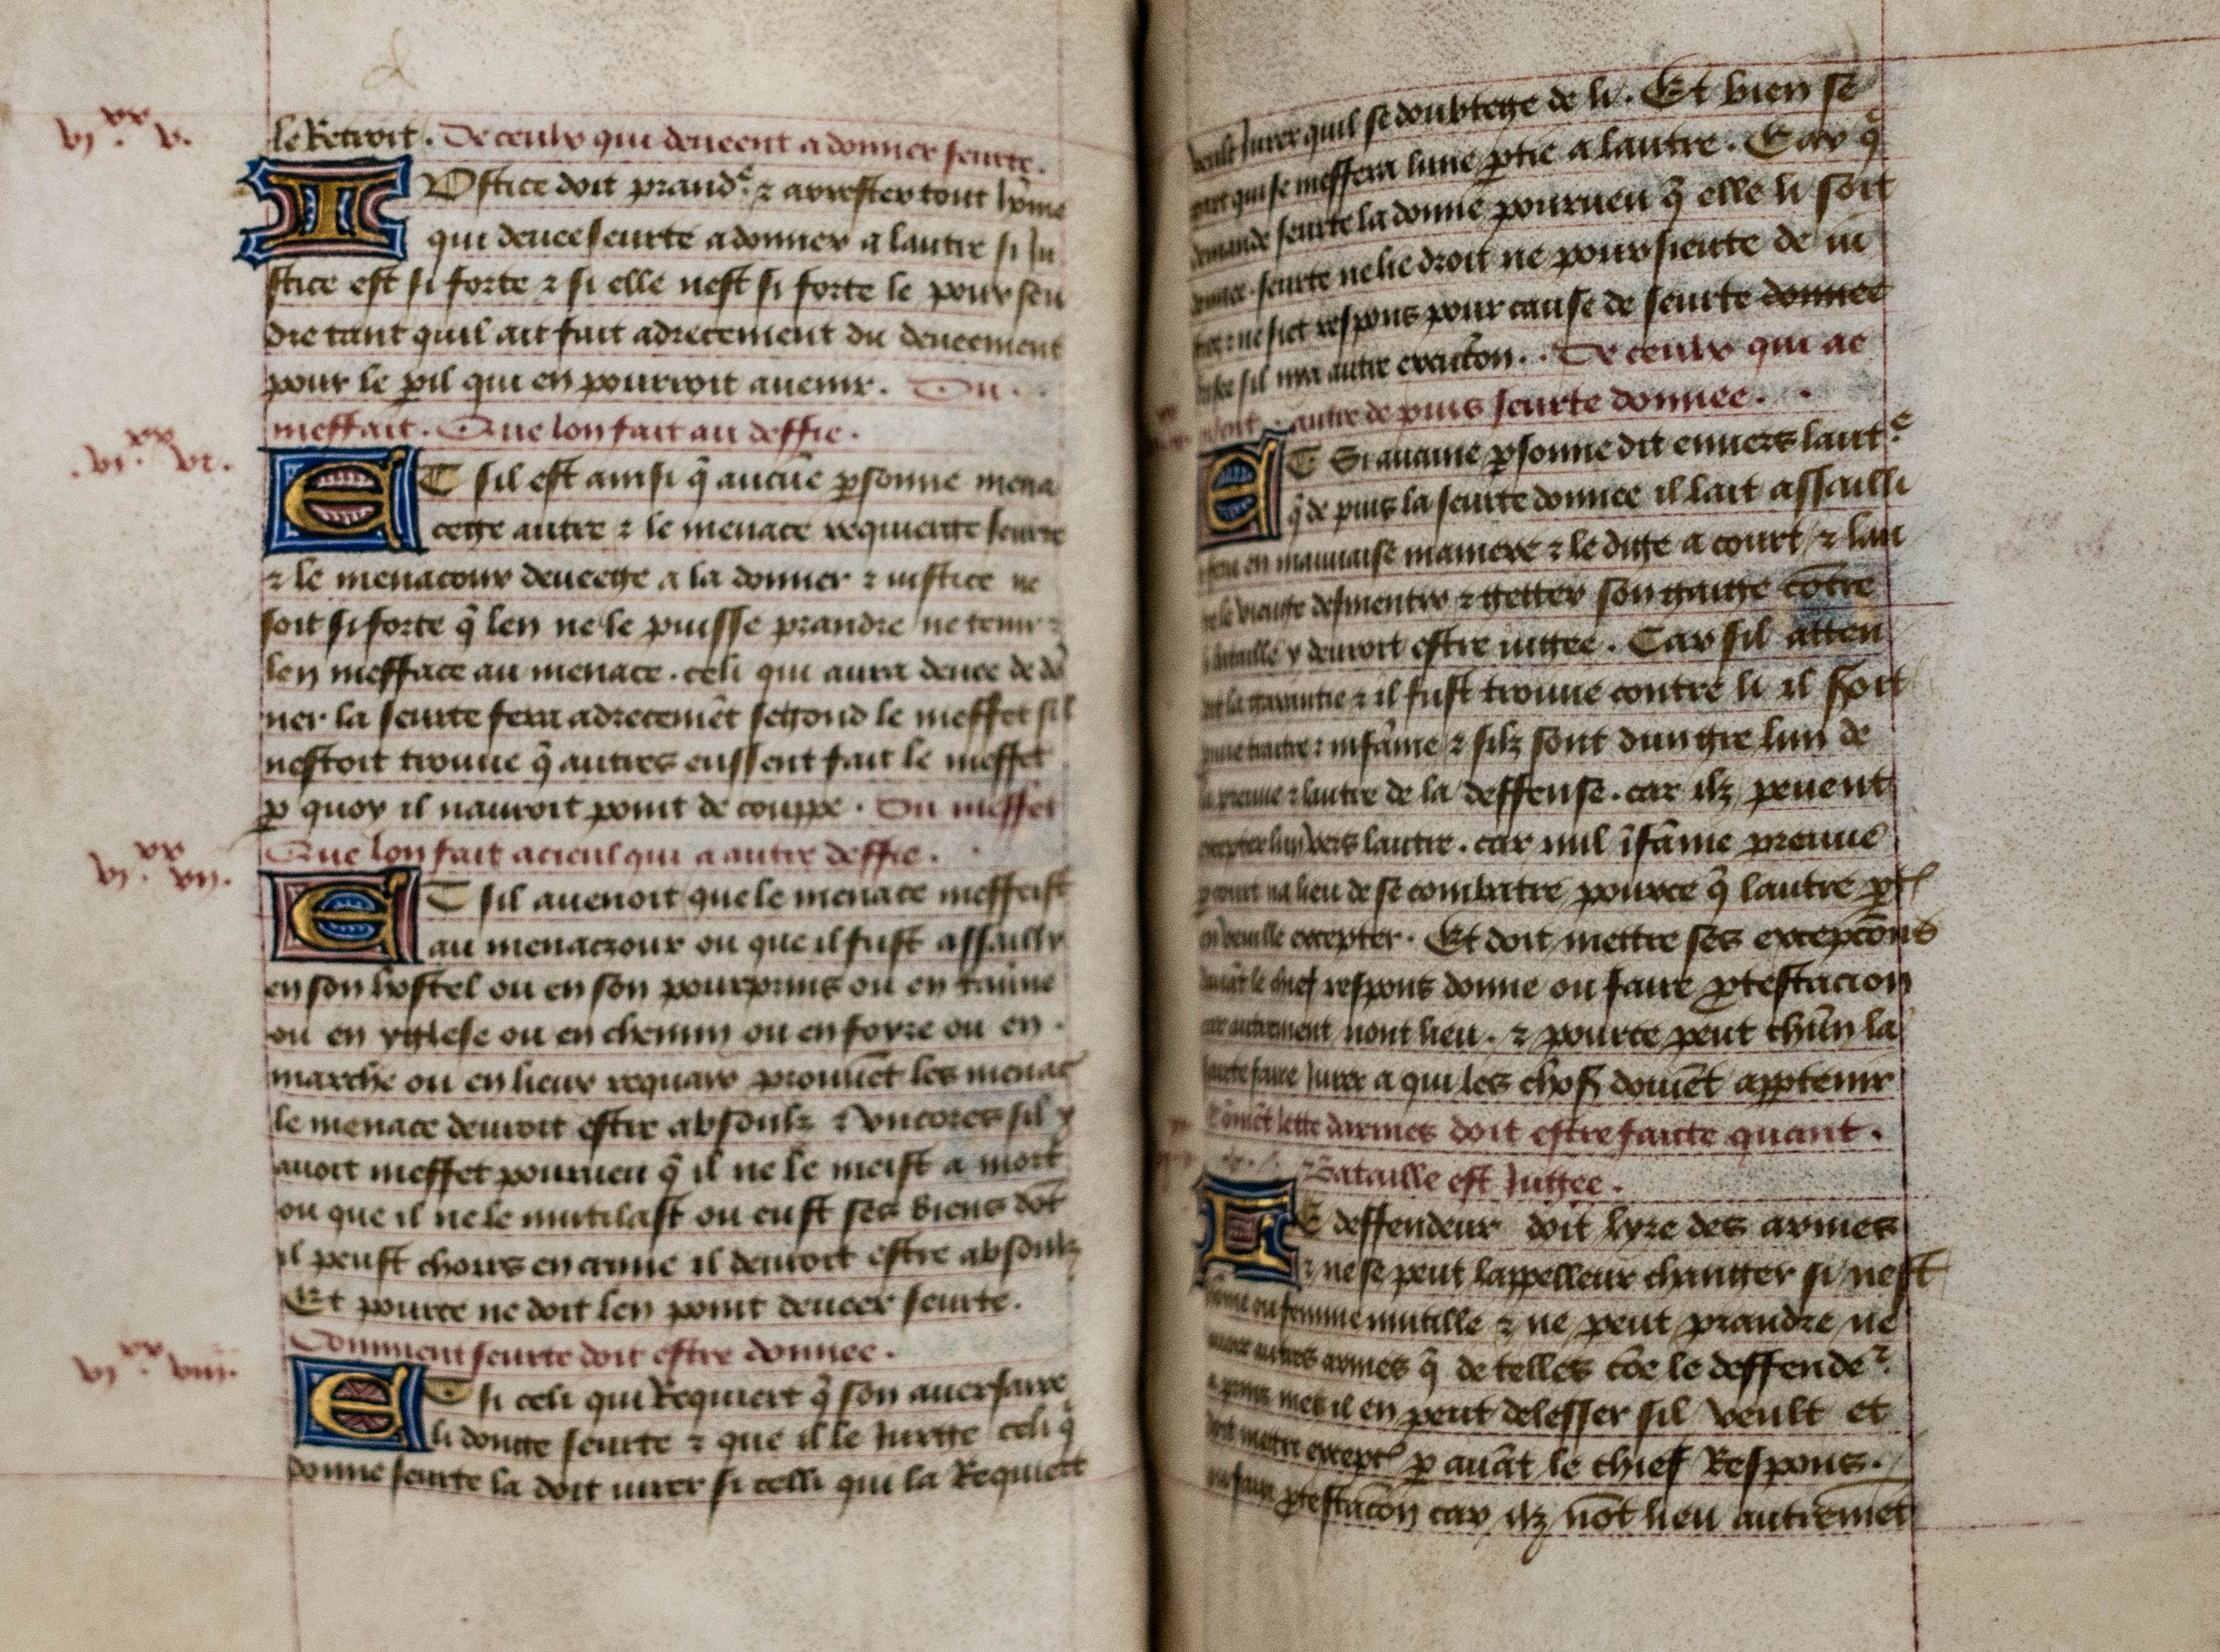 vi.xx v.
le Retroit. De ceulx qui deveent a donner seurte.
IUstice doit prandᵉ ⁊ arrester tout hōme
qui devee seurte a donner a lautre si Ju
stice est si forte ⁊ si elle nest si forte le poursen
dre tant quil ait fait adrecement du deveement
pour le ꝑil qui en pourroit avenir. Du.
meffait. Que lon fait au deffie.
.vi.xx vi.
ET sil est ainsi q̄ aucūe ꝑsonne mena
cege autre ⁊ le menace requierge seurte
⁊ le menaceur deveege a la donner ⁊ iustice ne
soit si forte q̄ len ne le puisse prandre ne tenir ⁊
len mefface au menace. celi qui aura devee de dō
ner la seurte fera adrecemēt segond le meffet sil
nestoit trouve q̄ autres eussent fait le meffet
ꝑ quoy il nauroit point de couppe. Du meffet
Que lon fait a cieul qui a autre deffie.
vi.xx vii.
ET sil avenoit que le menace meffeist
au menaczour ou que il fust assailly
en son hostel ou en son pourprins ou en tav̄ne
ou en yglese ou en chemin ou en foyre ou en.
marche ou en lieux requarx
le menace devroit estre absoulz ⁊ uncores sil y
avoit meffet pourveu q̄ il ne le meist a mort
ou que il ne le mutilast ou eust ses biens dōt
il peust en cryme il devroit estre absoulz
Et pource ne doit len point deveer seurte.
Comment seurte doit estre donnee.
vi.xx viii.
ET si celi qui Requiert q̄ son aversaire
li donge seurte ⁊ que il le Jurge celi q̄
donne seurte la doit iurer si celli qui la Requiert
veult Jurer quil se doubtege de li. Et bien se
gart qui se meffera lune ꝑtie a lautre. Car q̄
demande seurte la donne pourveu q̄ elle li soit
donnee. seurte ne lie droit ne poursieute de iu
ne siet respons pour cause de seurte donnee
sil nya autre exaction. De ceulx qui ac
autre de puis seurte donnee.
ET Si aucune ꝑsonne dit envers lautᵉ
q̄ de puis la seurte donnee il lait assailli
en mauvaise maniere ⁊ le dige a court ⁊ lau
le vienge desmentir ⁊ getter son gaige cōtre
bataille y devroit estre iugee. Car sil atten
la garantie ⁊ il fust trouve contre li il soit
⁊ infāme ⁊ silz sont dungre lun de
la preuve ⁊ lautre de la deffense. car ilz pevent
excepter lun vers lautre. car nul īfāme preuve
court na lieu de se combatre pource q̄ lautre ꝑt
veuille excepter. Et doit mettre ses excepcōns
le chief respons donne ou faire ꝓtestacion
autrement nont lieu. ⁊ pource peut chūn la
faire Jurer a qui les chos doivēt apptenir
Cōmēt lette darmes doit estre faicte quant.
Bataille est Jugee.
LE deffendeur doit lyre des armes
⁊ ne se peut lappelleur changer si nest
hōme ou femme mutille ⁊ ne peut prandre ne
autres armes q̄ de telles cōe le deffende
mes il en peut delesser sil veult et
mettre except ꝑ avāt le chief Respons.
ou faire ꝓtestacōn car ilz nōt lieu autremēt